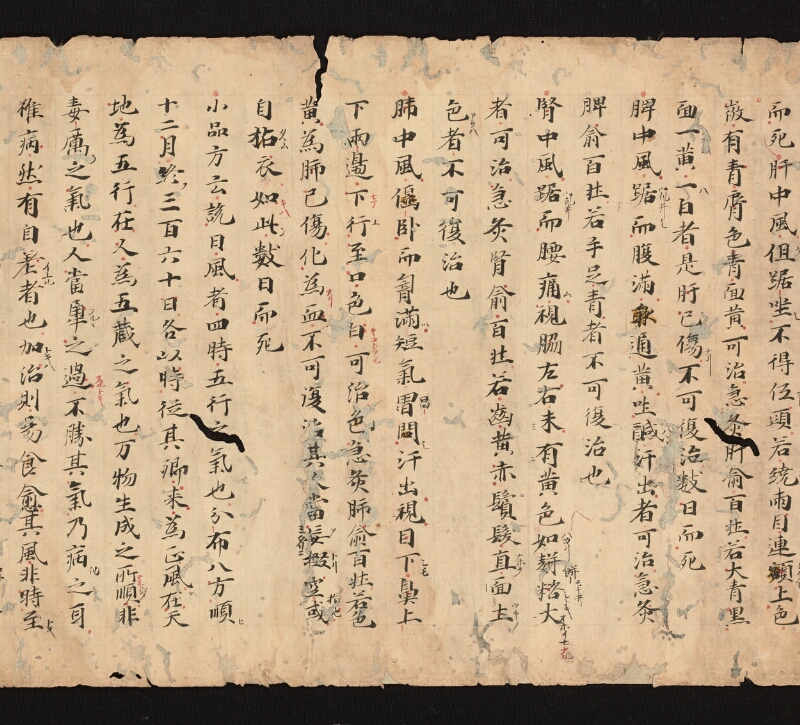 而死肝中風但踞坐不得伍頭若繞兩目連額上色
微有青脣色青面黄可治急灸肝俞百壮若大青黑
面一黄一白者是肝已傷不可復治數日而死
脾中風踞而腹滿通黄吐鹹汗出者可治急灸
脾俞百壮若手足青者不可復治也
腎中風踞而腰痛視脇左右未有黄色如餅粢大
者可治急灸腎俞百壮若齒黄赤鬢髮直面土
色者不可復治也
肺中風偃卧而胷滿短氣冒悶汗出視目下鼻上
下兩邊下行至口色白可治急灸肺俞百壮若色
黄為肺已傷化為血不可復治其人當妄掇空或
自拈衣如此數日而死
小品方云說曰風者四時五行之氣也分布八方順
十二月終三百六十日各以時從其郷来為正風在天
地為五行在人為五蔵之氣也万物生成之所順非
毒厲之氣也人當觸之過不勝其氣乃病之耳
雖病然有自差者也加治則易愈其風非時至